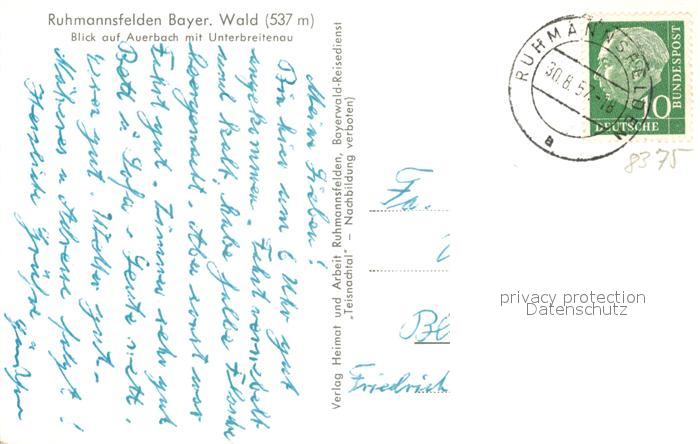 Ruhmannsfelden Bayer. Wald (537 m)
Blick auf Auerbach mit Unterbreitenau
Meine Lieben!
Bin hier um 6 Uhr gut
angekommen. Fahrt
und kalt, habe halbe Flasche
Aber sonst war
Fahrt gut. Zimmer sehr gut
Bett u. Sofa. Leute nett.
Essen gut. Wetter gut.
Näheres u. Adresse folgt!
Herzliche Grüße
Verlag Heimat und Arbeit Ruhmannsfelden, Bayerwald-Reisedienst
„Teisnachtal" – Nachbildung verboten)
RUHMANNSFELDEN
30.8.57-18
a
10
DEUTSCHE
BUNDESPOST
8375
Fa.
Friedrich
privacy protection
Datenschutz